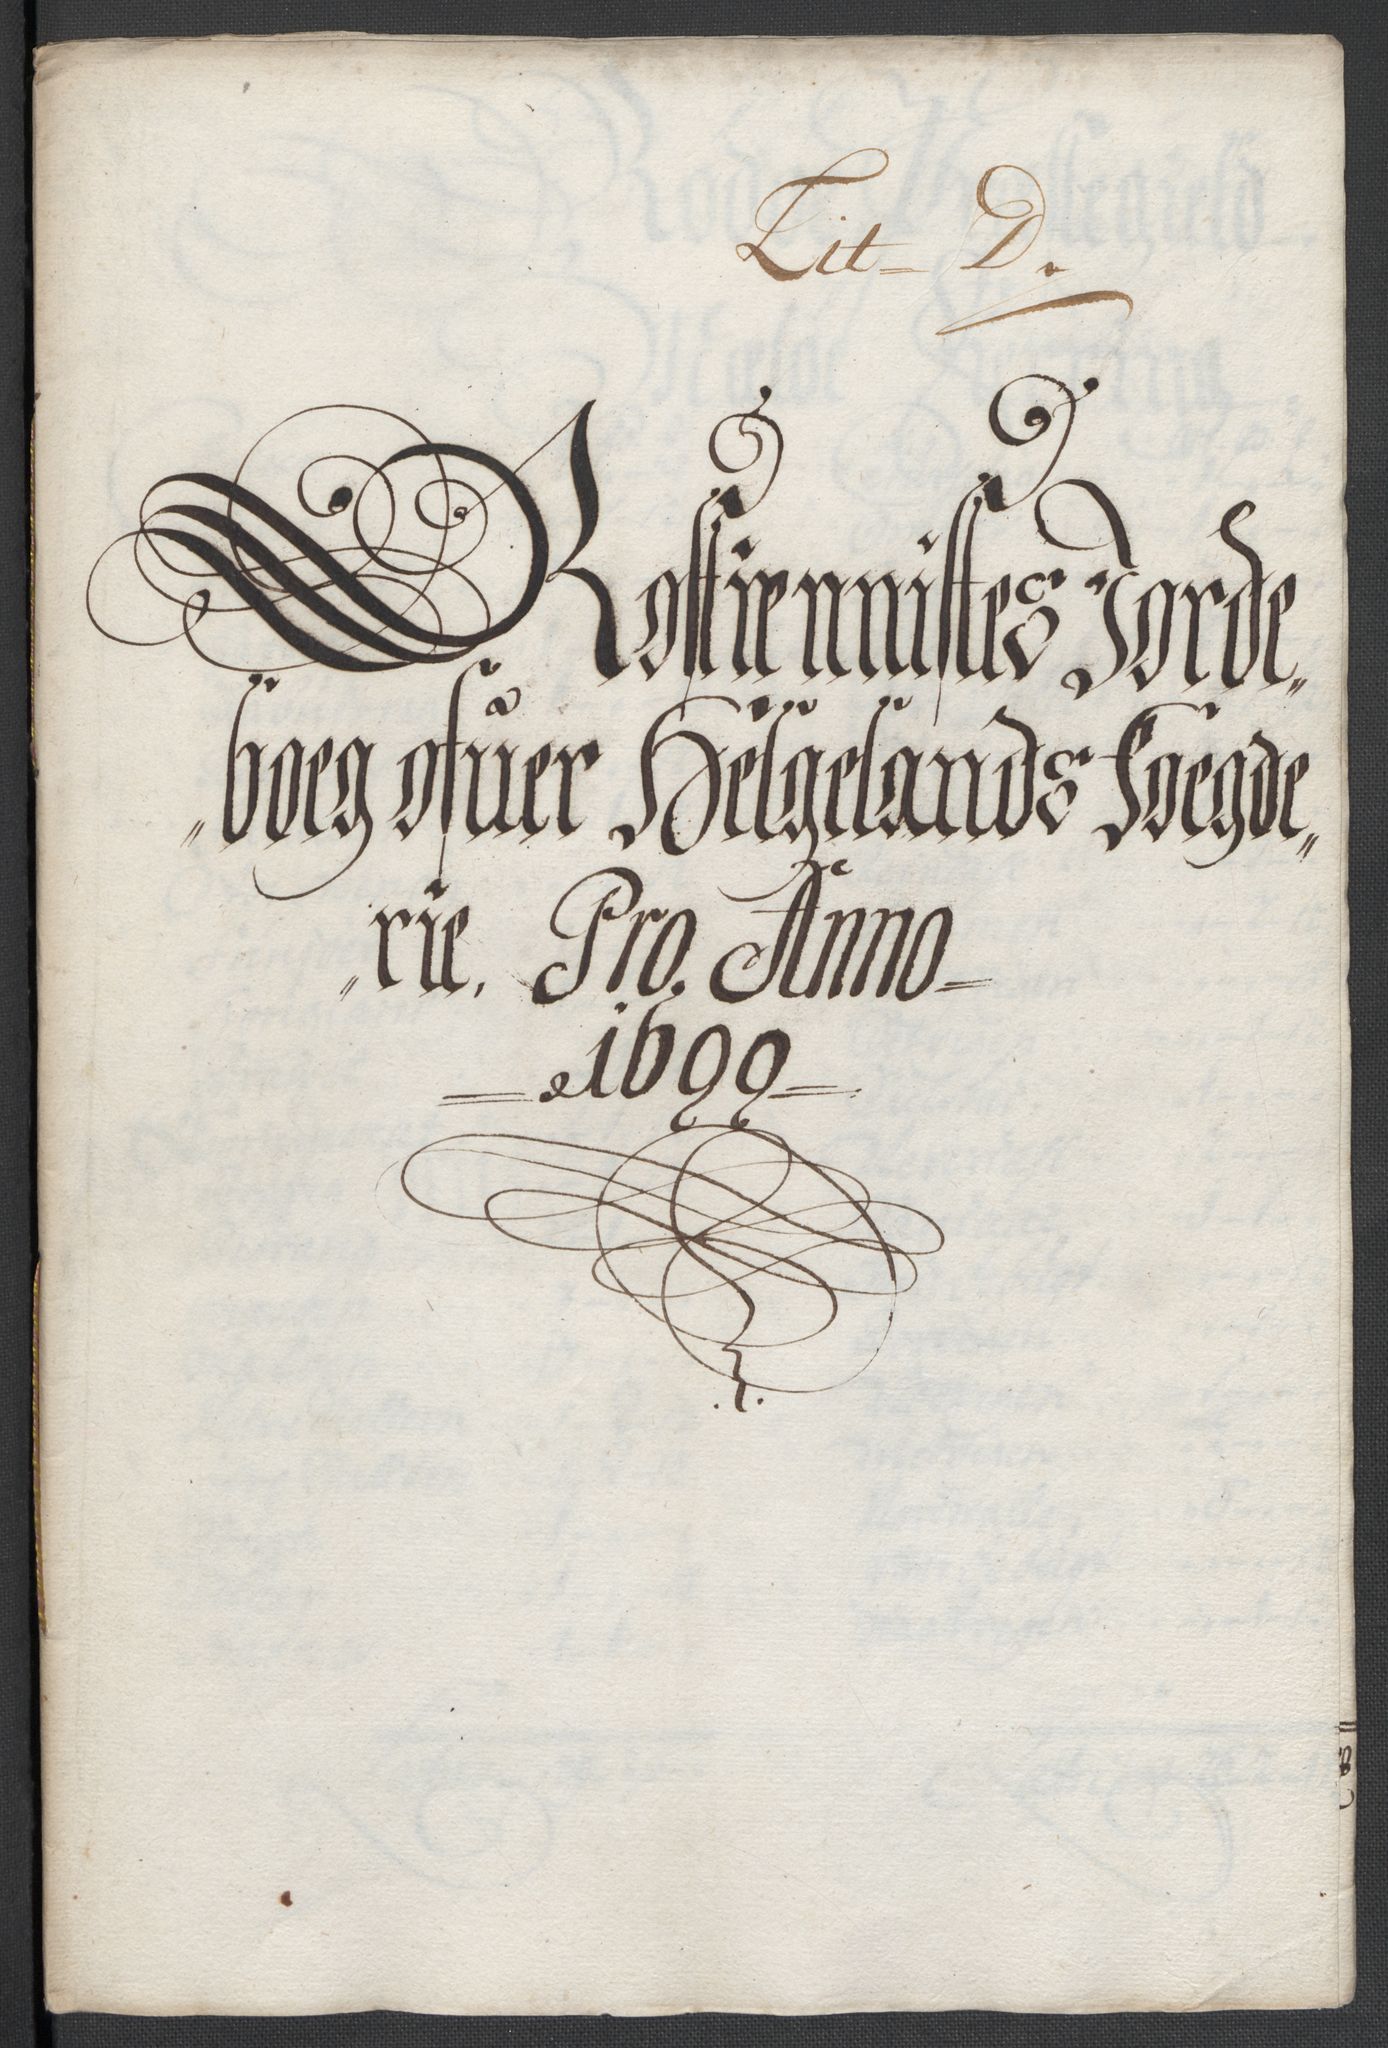 Lit- D.
Rosstiennistes Jorde„
„boeg ofuer Helgelands Foegde„
„rie. Pro. Anno-
1699